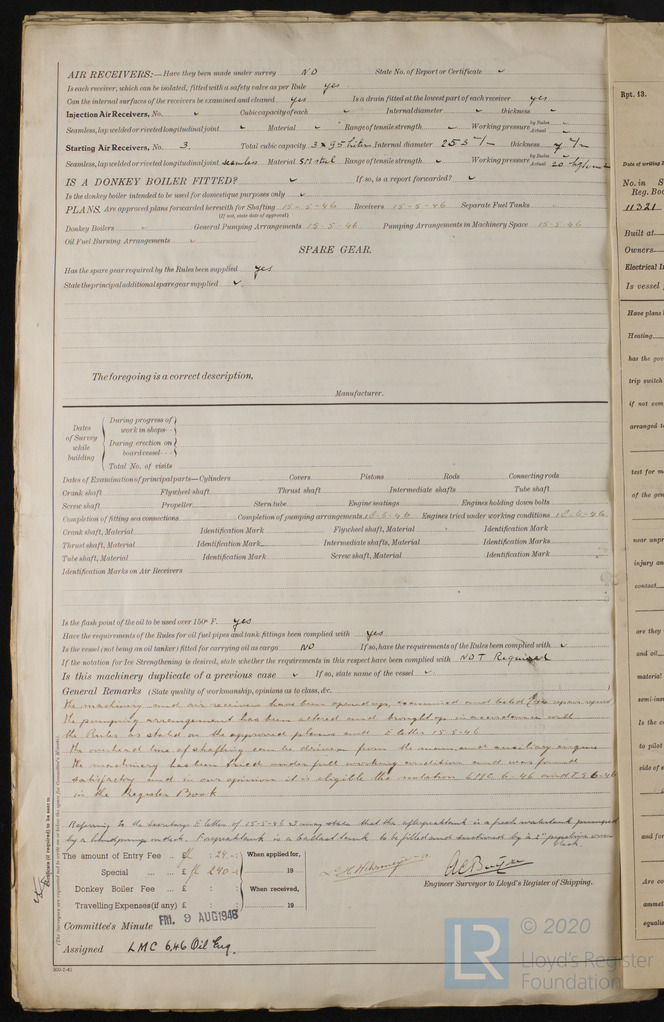 AIR RECEIVERS:—Have they been made under survey NO State No. of Report or Certificate ✓
Is each receiver, which can be isolated, fitted with a safety valve as per Rule yes
Can the internal surfaces of the receivers be examined and cleaned yes Is a drain fitted at the lowest part of each receiver yes
Injection Air Receivers, No. ✓ Cubic capacity of each ✓ Internal diameter ✓ thickness ✓
Seamless, lap welded or riveted longitudinal joint ✓ Material ✓ Range of tensile strength ✓ Working pressure by Rules ✓ Actual ✓
Starting Air Receivers, No. 3. Total cubic capacity 3 x 95 liters Internal diameter 255 m/m thickness 7 m/m
Seamless, lap welded or riveted longitudinal joint seamless Material SM steel Range of tensile strength ✓ Working pressure by Rules ✓ Actual 20 kg/cm2
IS A DONKEY BOILER FITTED? ✓ If so, is a report forwarded? ✓
Is the donkey boiler intended to be used for domestic purposes only ✓
PLANS. Are approved plans forwarded herewith for Shafting 15-5-46 Receivers 15-5-46 Separate Fuel Tanks
(If not, state date of approval)
Donkey Boilers ✓ General Pumping Arrangements 15-5-46 Pumping Arrangements in Machinery Space 15-5-46
Oil Fuel Burning Arrangements ✓
SPARE GEAR.
Has the spare gear required by the Rules been supplied yes
State the principal additional spare gear supplied ✓
The foregoing is a correct description,
Manufacturer.
Dates of Survey while building
During progress of work in shops - -
During erection on board vessel - - -
Total No. of visits
Dates of Examination of principal parts—Cylinders Covers Pistons Rods Connecting rods
Crank shaft Flywheel shaft Thrust shaft Intermediate shafts Tube shaft
Screw shaft Propeller Stern tube Engine seatings Engines holding down bolts
Completion of fitting sea connections Completion of pumping arrangements 18-6-46 Engines tried under working conditions 18-6-46
Crank shaft, Material Identification Mark Flywheel shaft, Material Identification Mark
Thrust shaft, Material Identification Mark Intermediate shafts, Material Identification Marks
Tube shaft, Material Identification Mark Screw shaft, Material Identification Mark
Identification Marks on Air Receivers
Is the flash point of the oil to be used over 150° F. yes
Have the requirements of the Rules for oil fuel pipes and tank fittings been complied with yes
Is the vessel (not being an oil tanker) fitted for carrying oil as cargo NO If so, have the requirements of the Rules been complied with ✓
If the notation for Ice Strengthening is desired, state whether the requirements in this respect have been complied with NOT Required
Is this machinery duplicate of a previous case ✓ If so, state name of the vessel ✓
General Remarks (State quality of workmanship, opinions as to class, &c.
the machinery and air receivers have been opened up, examined and tested
the pumping arrangement has been altered and brought up in accordance with
the Rules as stated on the approved plans and E letter 15-5-46
the overhead line of shafting can be driven from the main and auxiliary engine
the machinery has been tried under full working conditions and was found
satisfactory and in our opinion it is eligible the notation LMC 6-46 and TS 6-46
in the Register Book
Referring to the Secretary E letter of 15-5-46 I may state that the afterpeaktank is a fresh watertank pumped
by a handpump on deck. Forepeaktank is a ballast tank to be filled and
The amount of Entry Fee .. £ : 24 : When applied for,
Special ... £ 240 : 19
Donkey Boiler Fee ... £ : : When received,
Travelling Expenses (if any) £ : : 19
Engineer Surveyor to Lloyd's Register of Shipping.
Committee's Minute FRI. 9 AUG 1946
Assigned LMC 6.46 Oil Eng.
Certificate (if required) to be sent to
(The Surveyors are requested not to write on or below the space for Committee's Minute.)
Rpt. 13.
Date of writing
No. in
Reg. Boo
11321
Built at
Owners
Electrical In
Is vessel
Have plans
Heating
has the gov
trip switch
if not com
arranged t
test for m
of the gen
near unpr
injury an
contact
are they
and oil
material
semi-ins
Is the c
to pilot
side of s
and for
Are co
ammet
equalis
© 2020
LR
Lloyd's Register
Foundation